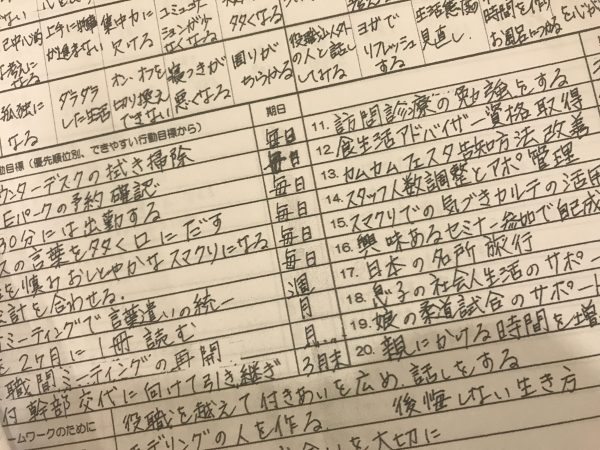 上手に時間
集中力に
コミュニケー
タタくなる
生活態度
時間を作り
が過ぎない
欠ける
ションが少
役職以外
ヨガで
見直し
お風呂
なくなる
の人と話し
リフレッシュ
してみる
する
孤独に
ダラダラ
オン、オフを
寝つきが
周りが
なる
した生活
切り換え
悪くなる
ちらかる
できない
期日
11. 訪問診療の勉強をする
動目標(優先順位別、できやすい行動目標から)
毎日
12. 食生活アドバイザー資格取得
ウンターデスクの拭き掃除
毎日
13. カムカムフェスタ告知方法改善
Eパークの予約確認
毎日
14. スタッフ人数調整とアポ管理
30分には出勤する
毎日
15. スマクリでの気づきカルテの活用
スの言葉をタタく口にだす
毎日
16. 興味あるセミナー参加で自己成
を慎みおしとやかなスマクリになる
毎日
17. 日本の名所旅行
計を合わせる.
週
18. 息子の社会人生活のサポー
ミーティングで言葉遣いの統一
月
19. 娘の柔道試合のサポート
2ヶ月に1冊読む
月
20. 親にかける時間を増
職間ミーティングの再開
付幹部交代に向けて引き継ぎ
3月末
役職を越えて付きあいを広め、話しをする
ームワークのために
デリングの人を作る.
後悔しない生き方
を大切に